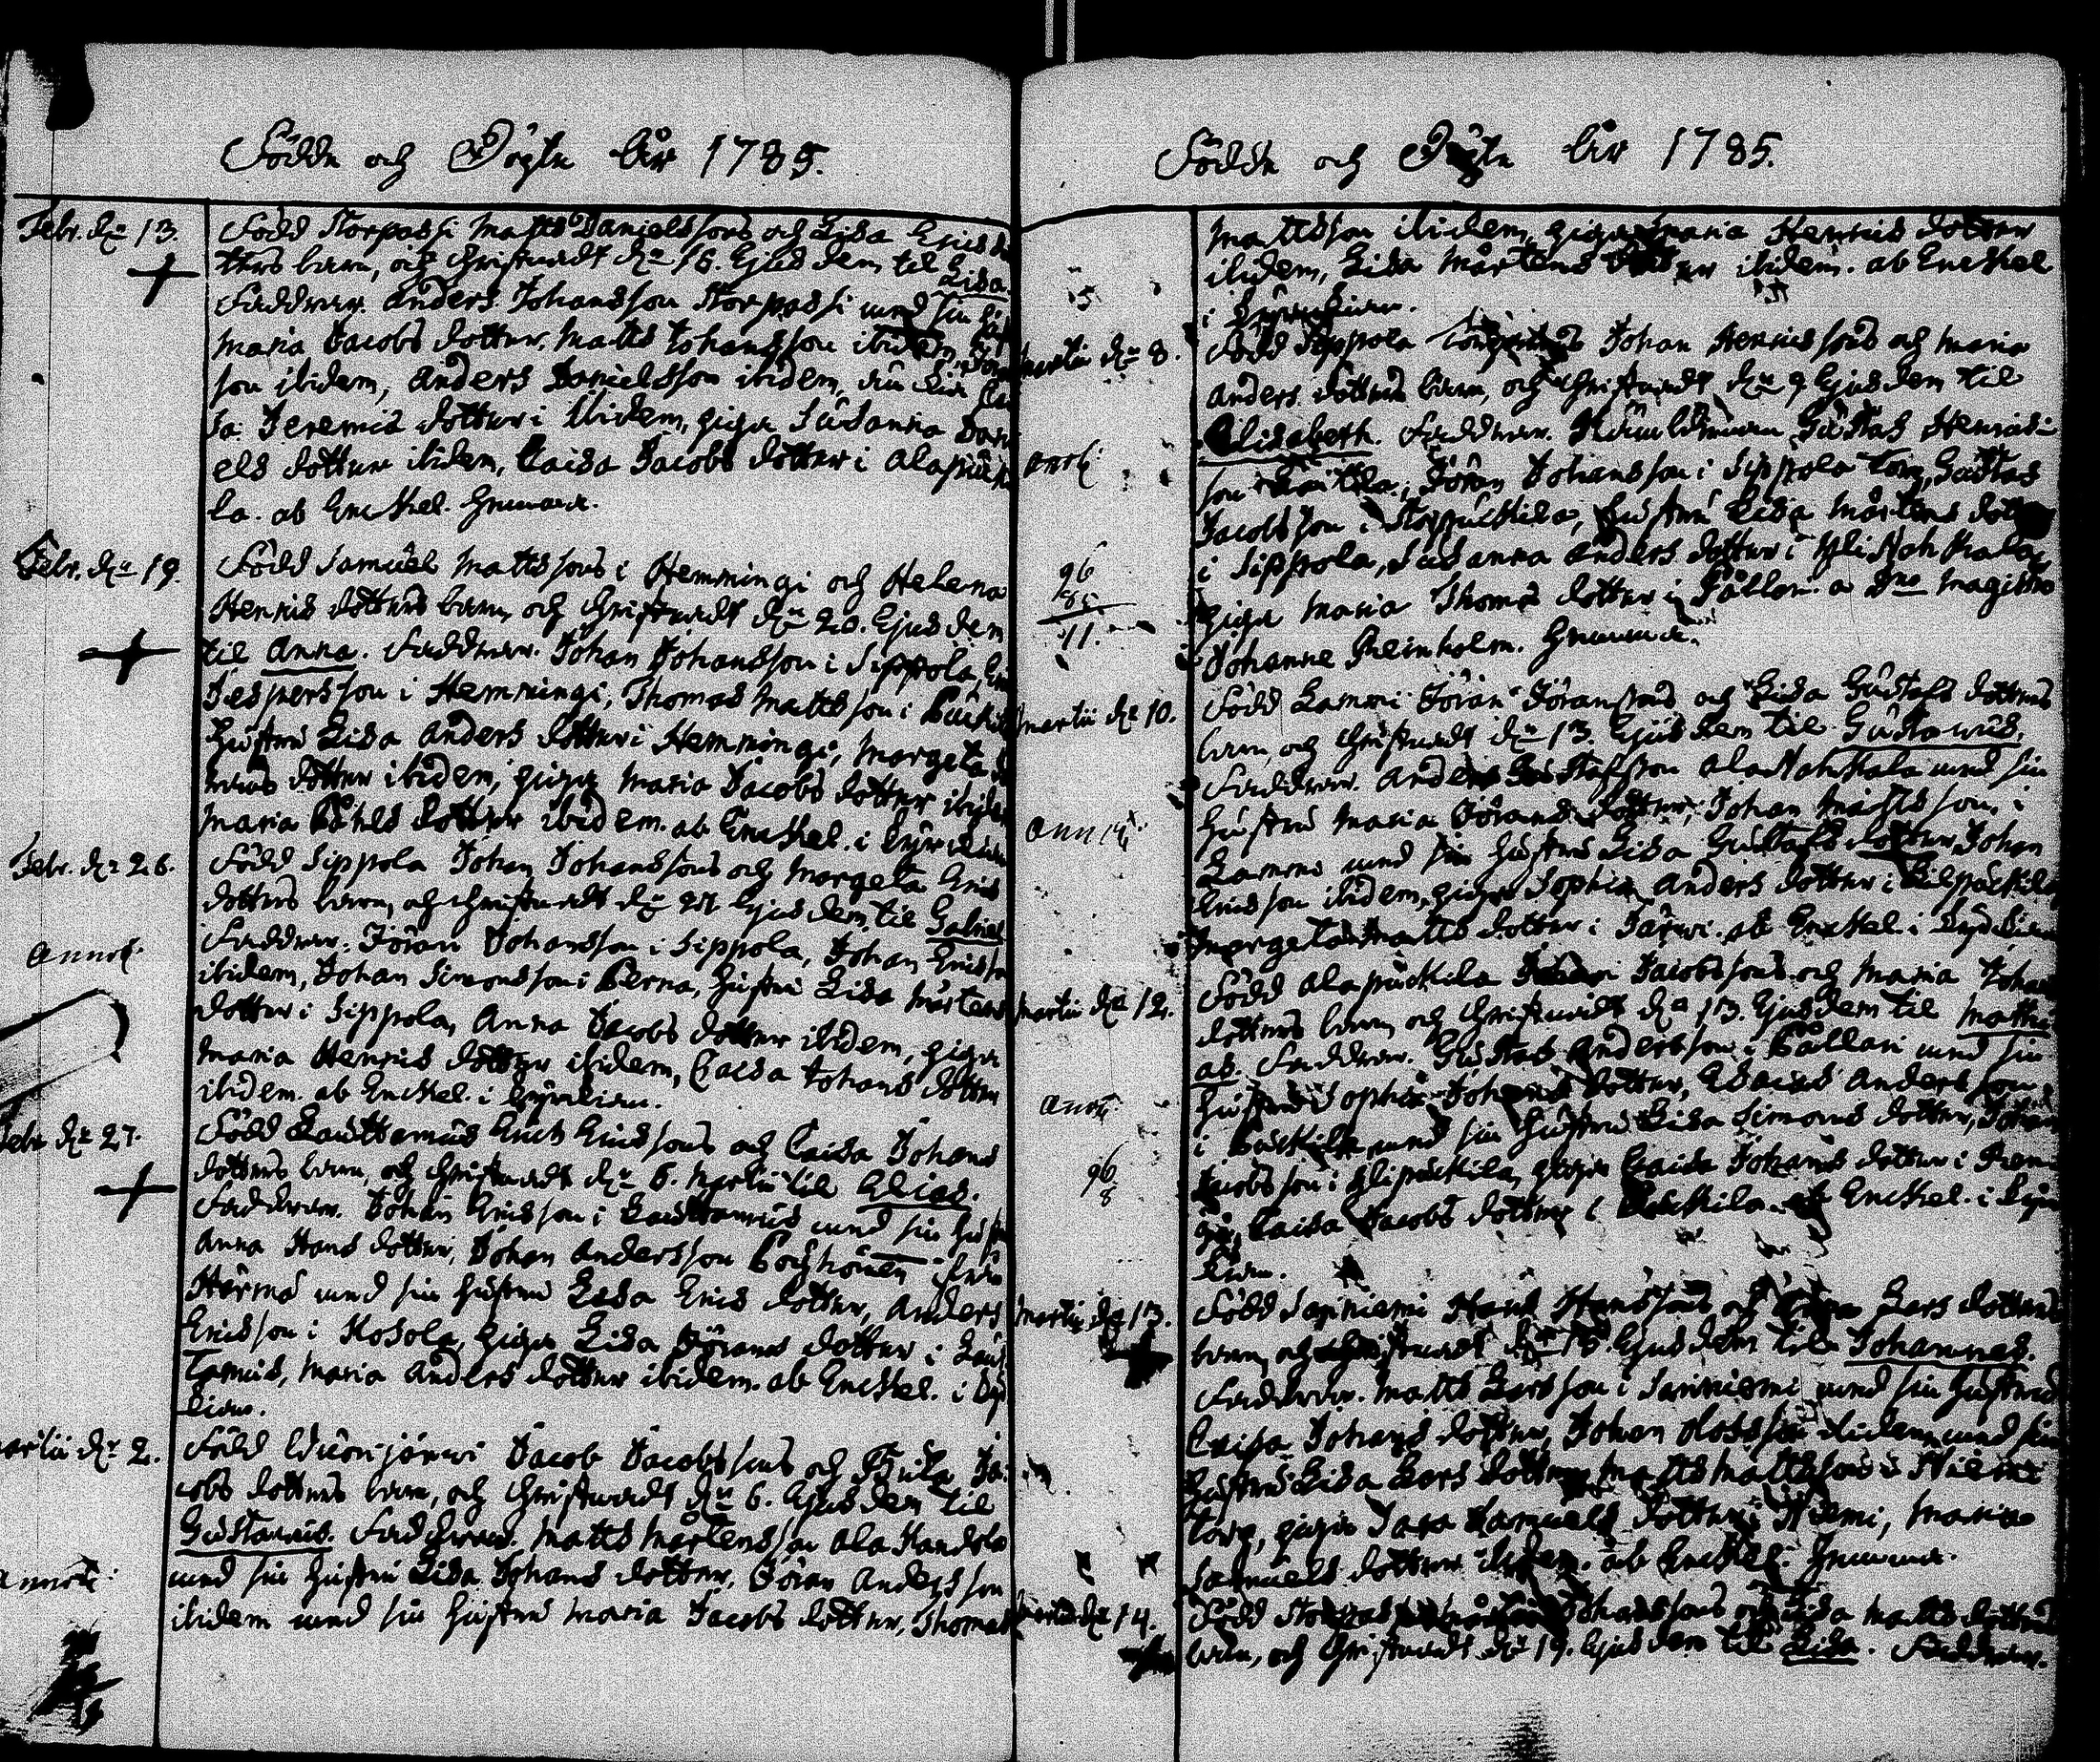 Födde och Döpte År 1785.
Febr. d. 13.
Född Storpassi Matts Danielssons och Lisa Erics do
tters barn, och Christnadt d. 16. Ejusdem til Lisa.
Faddrar. Anders Johansson Storpassi med sin
Maria Jacobs dotter, Matts Johansson ibidem
son ibidem, Anders Danielsson ibidem,
sa Jeremiæ dotter i ibidem, piga Susanna Dani
els dotter ibidem, Caisa Jacobs dotter i Alapuki
la. ab Enckel.
Febr. d. 19.
Född Samuel Mattssons i Hemmingi och Helena
Henrics dotters barn, och Christnadt d. 20. Ejusdem
til Anna. Faddrar. Johan Johansson i Sippola,
Jespersson i Hemmingi, Thomas Mattsson i
Hustru Lisa Anders dotter i Hemmingi, Margeta
dotter ibidem, piga Maria Jacobs dotter ibidem
Maria Påhls dotter ibidem. ab Enckel. i Kyrckian
Febr. d. 26.
Född Sippola Johan Johanssons och Margeta Erics
dotters barn, och Christnadt d. 27 Ejusdem til Gabriel
Annot.
Faddrar. Jöran Johansson i Sippola, Johan Ericsson
ibidem, Johan Simonsson i Perna, Hustru Lisa Mårtens
dotter i Sippola, Anna Jacobs dotter ibidem, piga
Maria Henrics dotter ibidem, Caisa Johans dotter
ibidem. ab Enckel. i Kyrckian.
Febr. d. 27.
Född Lauttamus Erich Ericssons och Caisa Johans
dotters barn, och Christnadt d. 6. Martii til Elias.
Faddrar. Johan Ericsson i Lauttamus med sin Hustru
Anna Hans dotter, Johan Andersson från
Härmä med sin Hustru Lisa Erics dotter, Anders
Ericsson i Kosola, piga Lisa Jörans dotter i Laut
tamus, Maria Anders dotter ibidem. ab Enckel. i Kyr
kian.
Martii d. 2.
Född Wuorijärwi Jacob Jacobssons och Brita Ja
cobs dotters barn, och Christnadt d. 6. Ejusdem til
Gustavus. Faddrar. Matts Mårtensson Ala Handola
Annot.
med sin Hustru Lisa Johans dotter, Jöran Andersson
ibidem med sin Hustru Maria Jacobs dotter, Thomas
Födde och Döpte År 1785.
Mattsson ibidem, piga Maria Henrics dotter
ibidem, Lisa Mårtens dotter ibidem. ab Enckel
i Kyrckian.
Martii d. 8.
Född Sippola Johan Henricssons och Maria
Anders dotters barn, och Christnadt d. 9 Ejusdem til
Elisabeth. Faddrar. Gustas Henrics
Annot.
son, Jöran Johansson i Sippola torp, Gustas
Jacobsson i Storpuckila, Hustru Lisa Mårtens dotter
i Sippola, Susanna Anders dotter i
96
85
11.
piga Maria Thomæ dotter i Pållari. a Dno Magistro
Johanne Reinholm.
Martii d. 10.
Född Lammi Jöran Jöranssons och Lisa Gustafs dotters
barn, och Christnadt d. 13 Ejusdem til Gustavus.
Faddrar. Anders Gustafsson Ala med sin
Annot.
Hustru Maria Jörans dotter, Johan Mattsson i
Lammi med sin Hustru Lisa Gustafs dotter, Johan
Ericsson ibidem, piga Sophia Anders dotter i
Margeta Matts dotter i Järwi. ab Enckel. i Kyrckian
Martii d. 12.
Född Alapuckila Jacobssons och Maria Johans
dotters barn, och Christnadt d. 13. Ejusdem til Matthi
as. Faddrar. Gustas Andersson i Pållari med sin
Annot.
Hustru Sophia Johans dotter, Esaias Andersson
i Puckila med sin Hustru Lisa Simons dotter, Johan
96
8
Jacobsson i Ylipuckila, piga Caisa Johans dotter i
Caisa Jacobs dotter i Puckila. ab Enckel. i Kyrc
kian.
Martii d. 13.
Född Sariniemi Hans Hanssons och Lars dotters
barn, och Christnadt d. Ejusdem til Johannes.
Faddrar. Matts Larsson i Sariniemi med sin Hustru
Caisa Johans dotter, Johan Olofsson ibidem med sin
Hustru Lisa Lars dotter, Matts Mattsson i Niemi
torp, piga Sara Samuels dotter i Niemi, Maria
Samuels dotter ibidem. ab Enckel.
Martii d. 14.
Född Johanssons och Lisa Matts dotters
barn, och Christnadt d. 19. Ejusdem til Lisa. Faddrar.